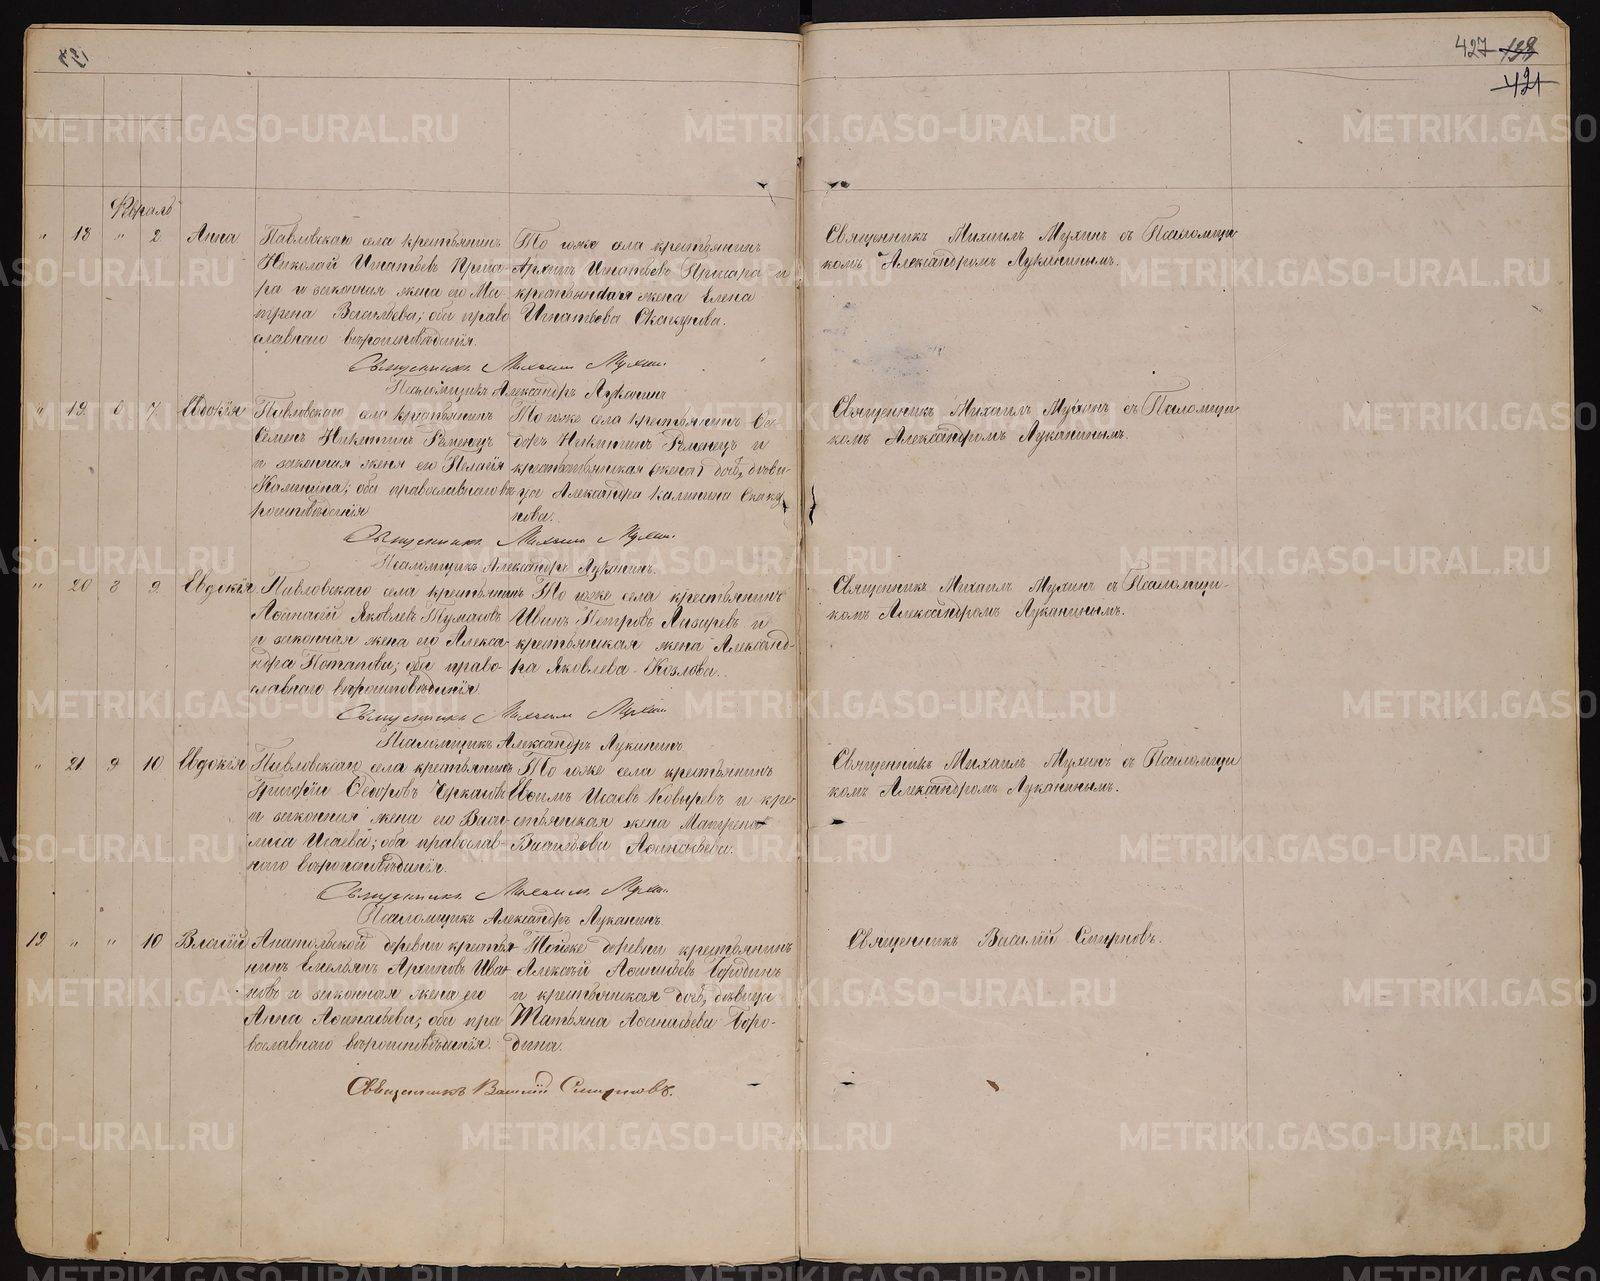 427 138
421
Февраль
" 18 " 2 Анна
Павловскаго села крестьянинъ
Николай Игнатьевъ
ра и законная жена его Ма-
трена Васильева; оба право
славнаго вѣроисповѣданія.
То гоже села крестьянинъ
Архипъ Игнатьевъ и
жена Елена
Игнатьева Скакунова.
Священникъ Михаилъ Мухинъ съ Псаломщи-
комъ Александромъ Луканинымъ.
Священникъ Михаилъ Мухинъ
Псаломщикъ Александръ Луканинъ
" 19 6 7 Евдокія
Павловскаго села крестьянинъ
Семенъ Никитинъ Ременецъ
и законная жена его Пелагія
Калинина; оба православнаго вѣ
роисповѣданія
То гоже села крестьянинъ Ѳе-
доръ Никитинъ Ременецъ и
крестьянская дочь, дѣви-
ца Александра Калинина Скаку
нова.
Священникъ Михаилъ Мухинъ съ Псаломщи-
комъ Александромъ Луканинымъ.
Священникъ Михаилъ Мухинъ
Псаломщикъ Александръ Луканинъ.
" 20 8 9 Евдокія
Павловскаго села крестьянинъ
Аѳанасій Яковлевъ Тумаковъ
и законная жена его Алекса-
ндра Потапова; оба право-
славнаго вѣроисповѣданія.
То гоже села крестьянинъ
Иванъ Петровъ Лазаревъ и
крестьянская жена Александ-
ра Яковлева Козлова.
Священникъ Михаилъ Мухинъ съ Псаломщи-
комъ Александромъ Луканинымъ.
Священникъ Михаилъ Мухинъ
Псаломщикъ Александръ Луканинъ
" 21 9 10 Евдокія
Павловскаго села крестьянинъ
Григорій Ѳедоровъ Черкасовъ
и законная жена его Васи-
лиса Исаева; оба православ-
наго вѣроисповѣданія.
То гоже села крестьянинъ
Евѳимъ Исаевъ Ковыревъ и кре-
стьянская жена Матрена
Васильева Аѳанасьева.
Священникъ Михаилъ Мухинъ съ Псаломщи
комъ Александромъ Луканинымъ.
Священникъ Михаилъ Мухинъ
Псаломщикъ Александръ Луканинъ
19 " " 10 Власій
деревни крестья-
нинъ Емельянъ Архиповъ Ива-
новъ и законная жена его
Анна Аѳанасьева; оба пра
вославнаго вѣроисповѣданія.
Тойже деревни крестьянинъ
Алексѣй Аѳанасьевъ Бородинъ
и крестьянская дочь, дѣвица
Татьяна Аѳанасьева Боро-
дина.
Священникъ Василій Смирновъ.
Священникъ Василій Смирновъ.
METRIKI.GASO-URAL.RU